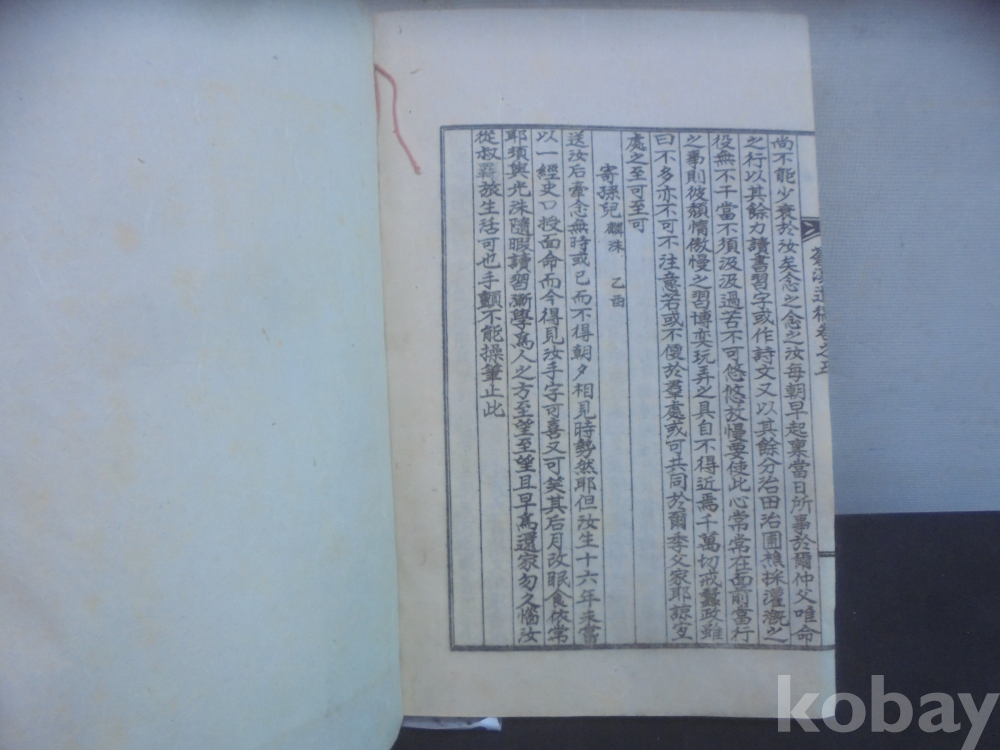 尚不能少衰於汝矣念之念之汝每朝早起稟當日所事於爾仲父唯命
之行以其餘力讀書習字或作詩文又以其餘分治田治圃樵採灌漑之
役無不干當不須汲汲過苦不可悠悠放慢要使此心常常在面前當行
之第則彼頹惰傲慢之習博奕玩弄之具自不得近焉千萬切戒蠶政雖
曰不多亦不可不注意若或不便於羣處或可共同於爾季父家耶諒宜
處之至可至可
寄孫兒 洙 乙酉
送汝后牽念無時或已而不得朝夕相見時勢然耶但汝生十六年未嘗
以一經史口授面命而今得見汝手字可喜又可笑其后月改眠食依常
耶須與光洙隨暇讀習漸學爲人之方至望至望且早爲還家勿久惱汝
從叔羇旅生活可也手顫不能操筆止此
溪遺稿卷之五
kobay